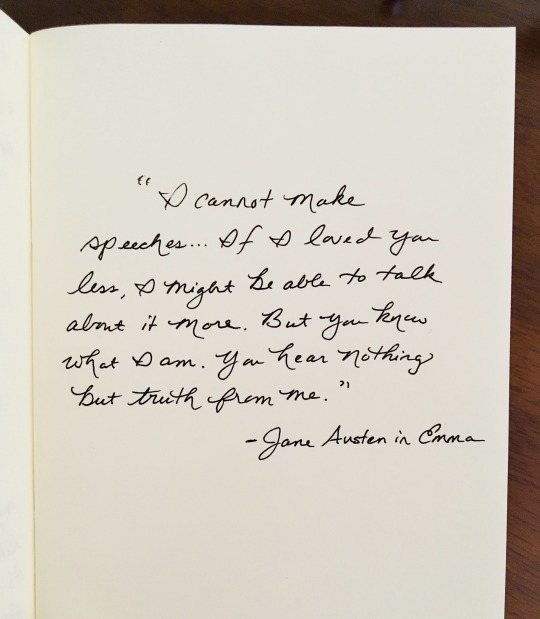 "I cannot make
speeches... If I loved you
less, I might be able to talk
about it more. But you know
what I am. You hear nothing
but truth from me."
-Jane Austen in Emma